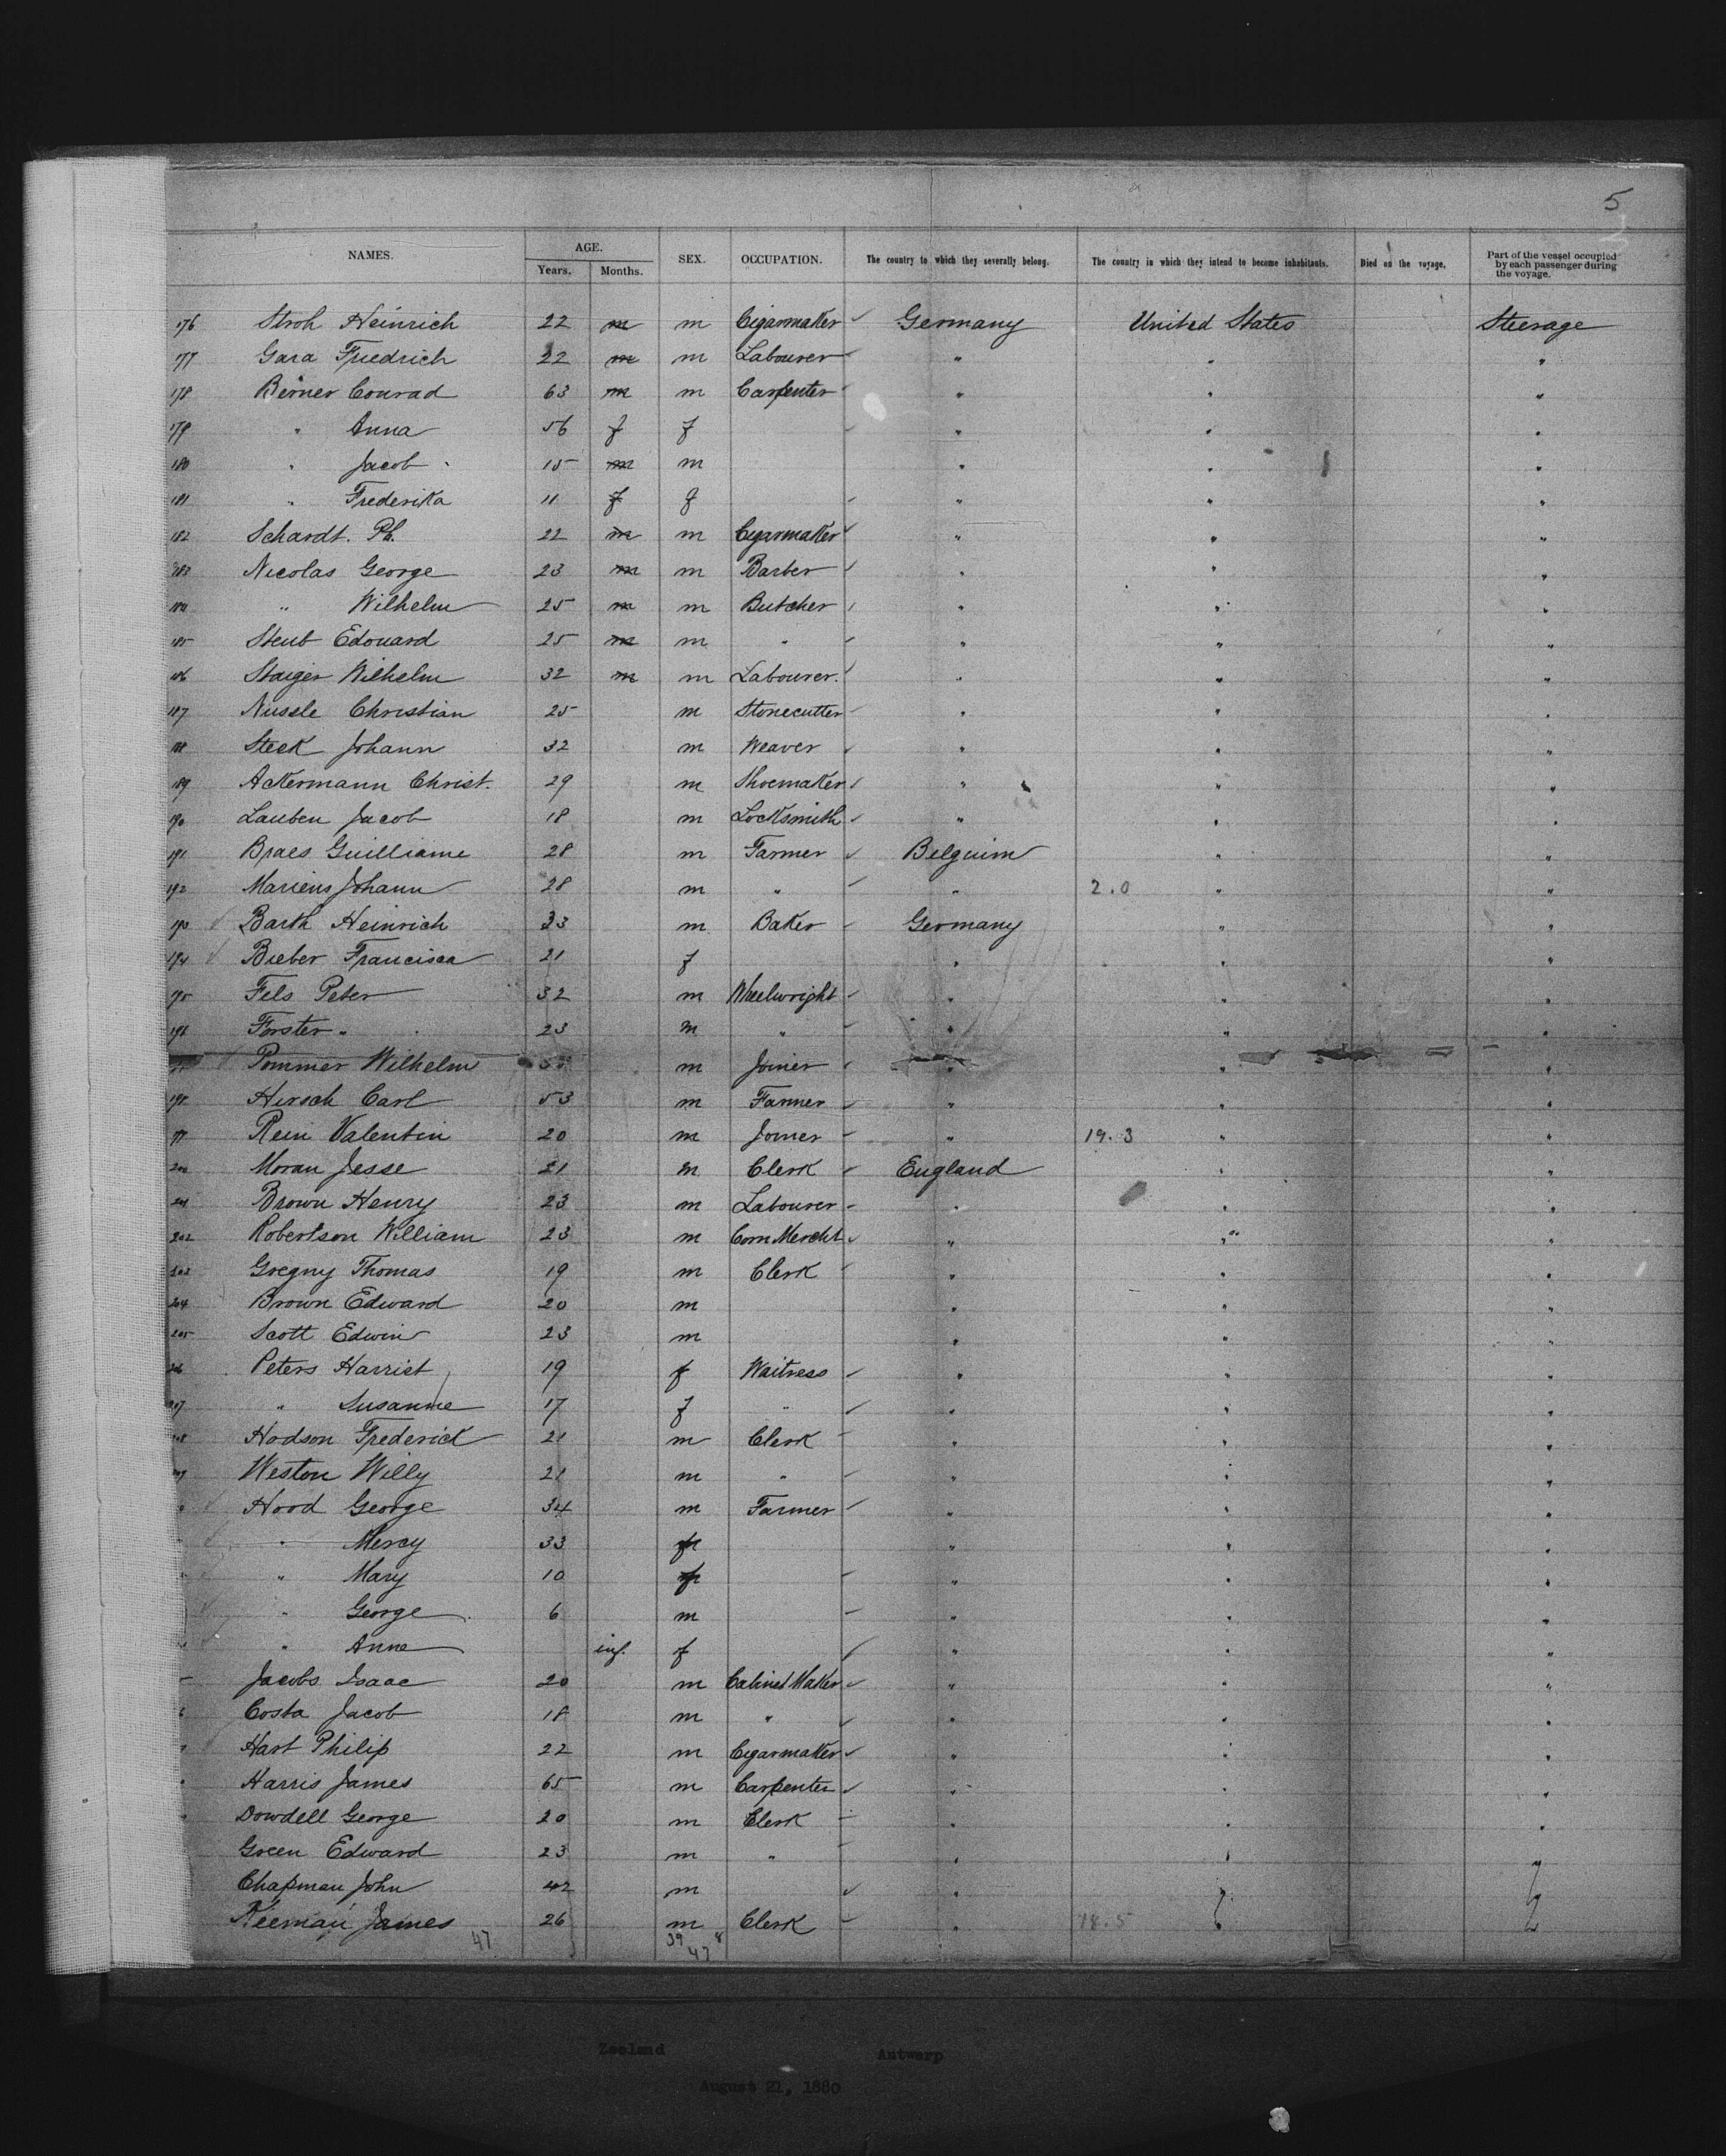 5
NAMES. AGE. Years. Months. SEX. OCCUPATION. The country to which they severally belong. The country in which they intend to become inhabitants. Died on the voyage. Part of the vessel occupied by each passenger during the voyage.
176 Stroh Heinrich 22 m m Cigarmaker Germany United States Steerage
177 Gara Friedrich 22 m m Labourer " " "
178 Berner Conrad 63 m m Carpenter " " "
179 " Anna 56 f f " " "
180 " Jacob 15 m m " " "
181 " Frederika 11 f f " " "
182 Schardt. Ph. 22 m m Cigarmaker " " "
183 Nicolas George 23 m m Barber " " "
184 " Wilhelm 25 m m Butcher " " "
185 Steub Edouard 25 m m " " " "
186 Staiger Wilhelm 32 m m Labourer. " " "
187 Nussle Christian 25 m Stonecutter " " "
188 Steek Johann 32 m Weaver " " "
189 Ackermann Christ. 29 m Shoemaker " " "
190 Lauben Jacob 18 m Locksmith " " "
191 Braes Guilliame 28 m Farmer Belguim " "
192 Mariens Johann 28 m " " 2.0 " "
193 Barth Heinrich 33 m Baker Germany " "
194 Bieber Francisca 21 f " " "
195 Fels Peter 32 m Wheelwright " " "
196 Forster " 23 m " " " "
Pommer Wilhelm m Joiner " " "
198 Hirsch Carl 53 m Farmer " " "
199 Rein Valentin 20 m Joiner " 19.3 " "
200 Moran Jesse 21 m Clerk England " "
201 Brown Henry 23 m Labourer " " "
202 Robertson William 23 m Corn Mercht " " "
203 Gregny Thomas 19 m Clerk " " "
204 Brown Edward 20 m " " "
205 Scott Edwin 23 m " " "
206 Peters Harriet 19 f Waitress " " "
207 " Susanne 17 f " " " "
208 Hodson Frederick 21 m Clerk " " "
209 Weston Willy 21 m " " " "
Hood George 34 m Farmer " " "
" Mercy 33 f " " "
" Mary 10 f " " "
" George 6 m " " "
" Anne inf. f " " "
Jacobs Isaac 20 m Cabinet Maker " " "
Costa Jacob 18 m " " " "
Hart Philip 22 m Cigarmaker " " "
Harris James 65 m Carpenter " " "
Dowdell George 20 m Clerk " " "
Green Edward 23 m " " " "
Chapman John 42 m " " "
Keeman James 26 m Clerk " 18.5 " "
47 39 8
47
Zeeland Antwerp
August 21, 1880